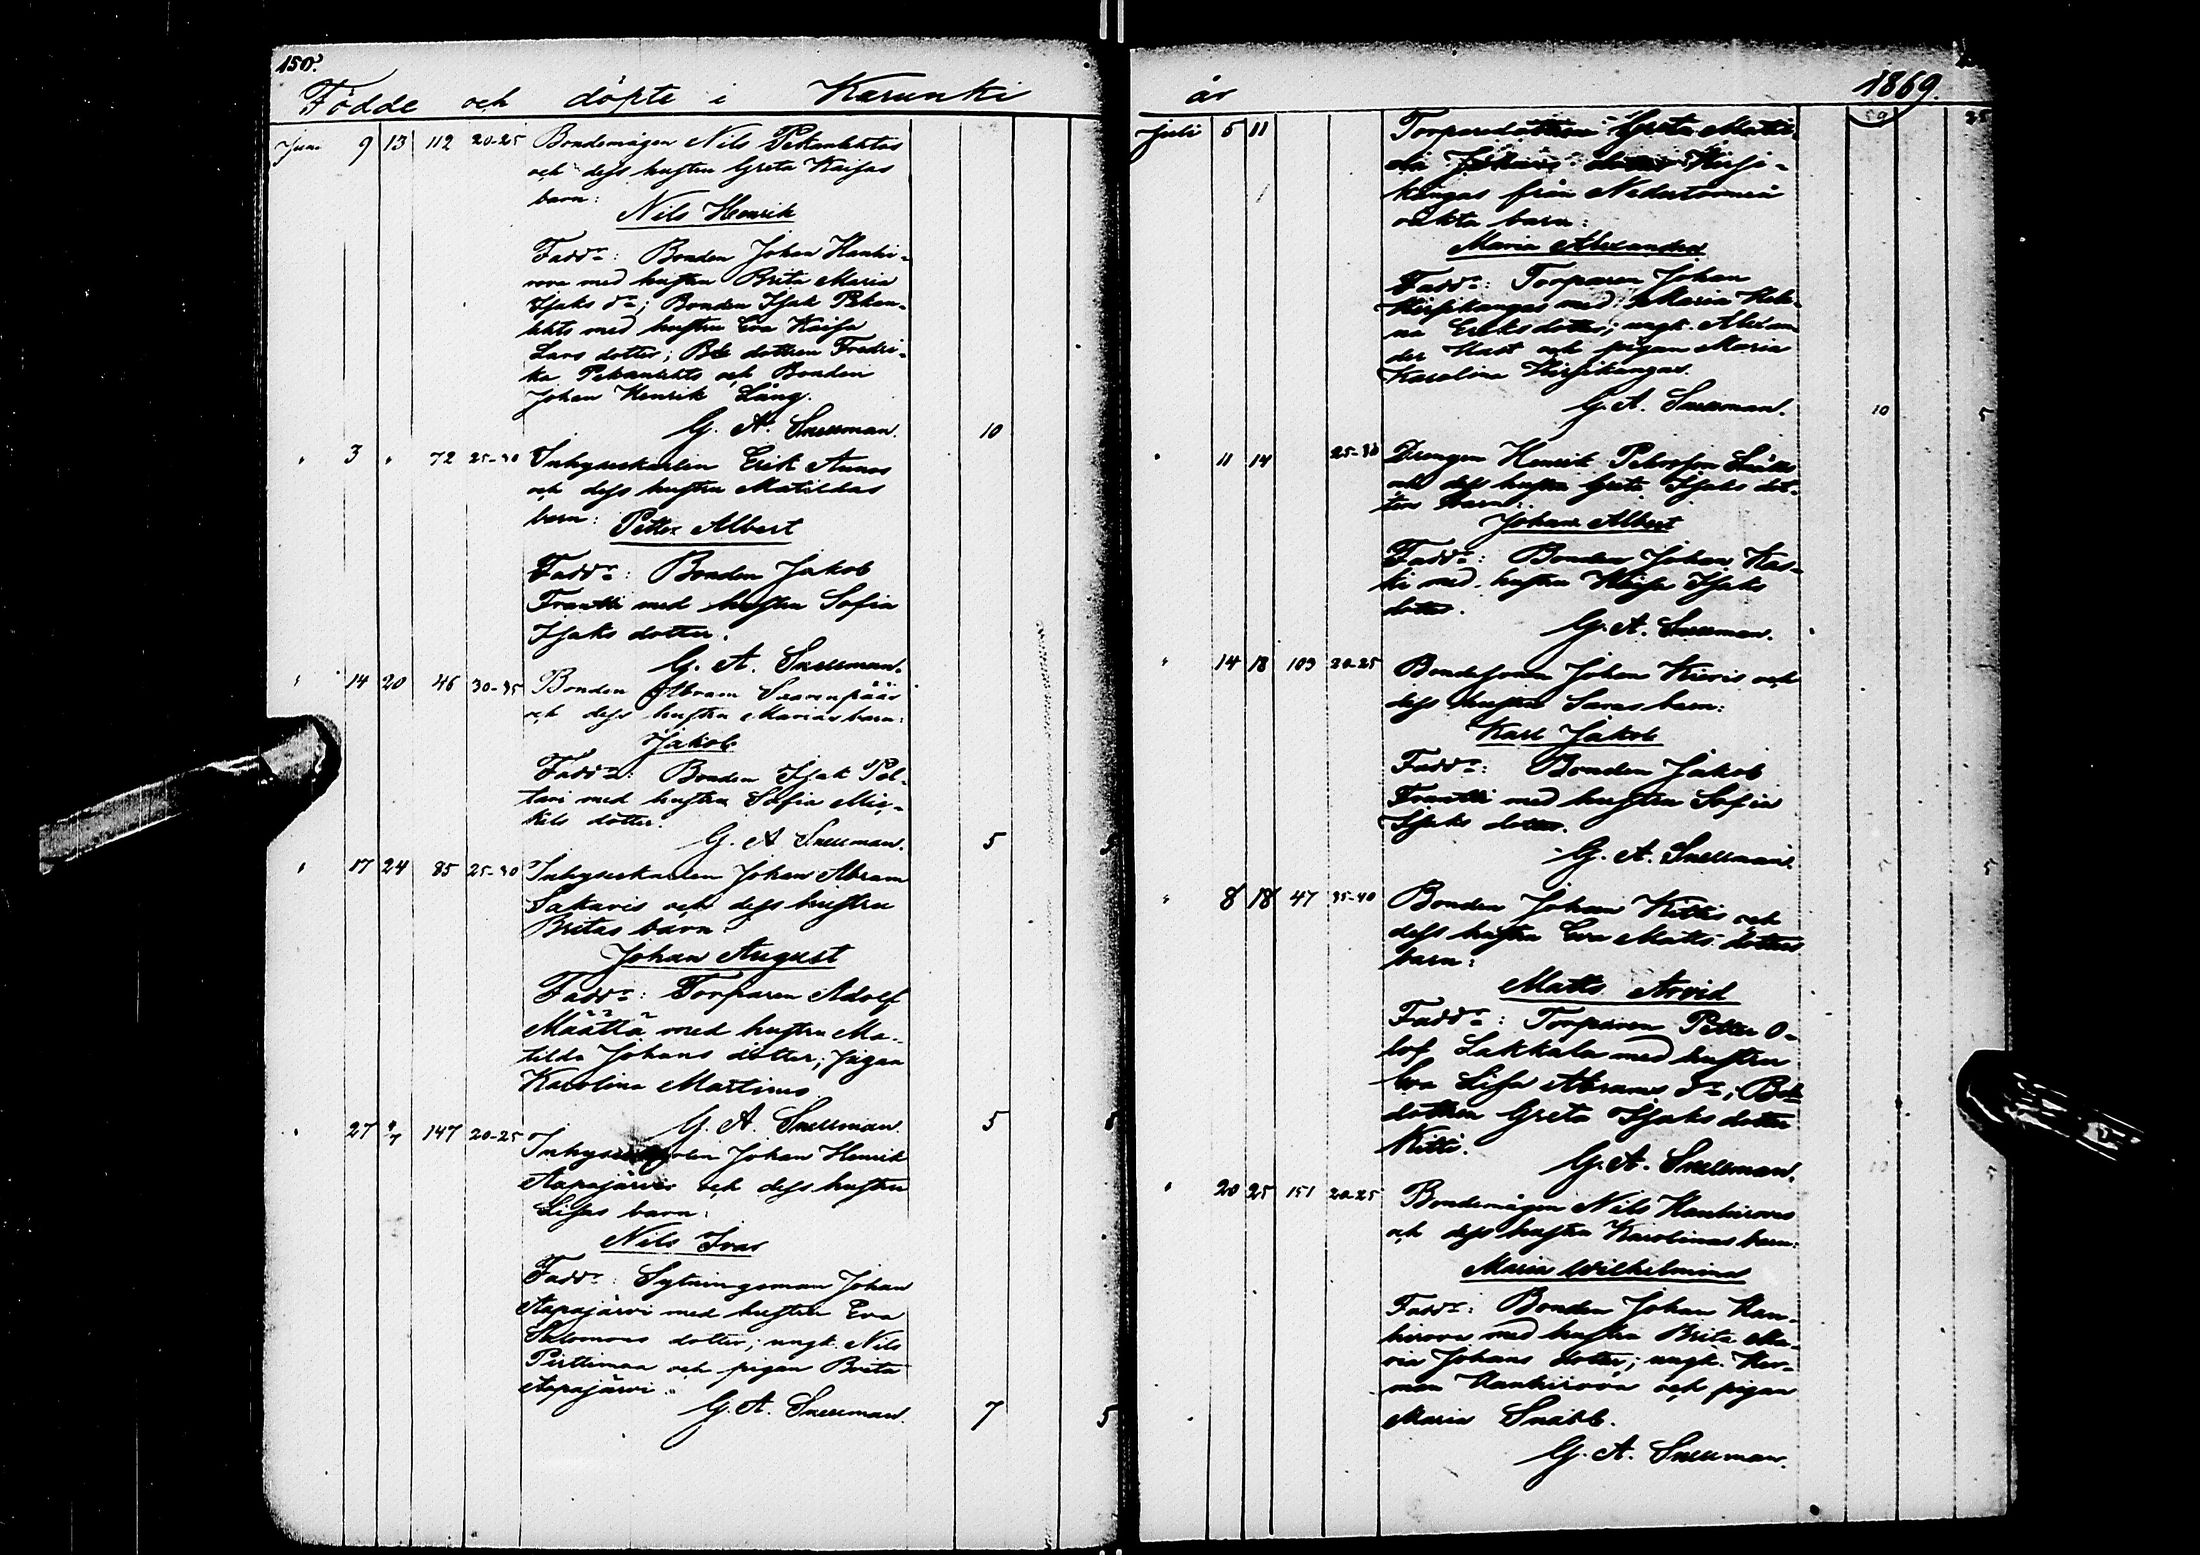 150.
Födde och döpte i Karunki
Juni 9 13 112 20-25 Bondemågen Nils Pekanlehtos
och dess hustru Greta Kaisas
barn:
Nils Henrik
Fadd.: Bonden Johan Hanhi-
rova med hustru Brita Maria
Isaks dr; Bonden Isak Pekan-
lehto med hustru Eva Kaisa
Lars dotter; Bde dottren Fredri-
ka Pekanlehto och Bonden
Johan Henrik Lång.
G. A. Snellman. 10
" 3 " 72 25-30 Inhyseskarlen Erik Aunos
och dess hustru Matildas
barn: Petter Albert
Fadd.: Bonden Jakob
Frantti med hustru Sofia
Isaks dotter.
G. A. Snellman.
" 14 20 46 30-35 Bonden Abram Saarenpääs
och dess hustru Marias barn:
Jakob
Fadd.: Bonden Isak Pel-
tari med hustru Sofia Mic-
kels dotter.
G. A Snellman. 5 5
" 17 24 85 25-30 Inhyseskarlen Johan Abram
Lakaris och dess hustru
Britas barn:
Johan August
Fadd.: Torparen Adolf
Määttä med hustru Ma-
tilda Johans dotter; pigan
Karolina Martinus
G. A. Snellman. 5 5
" 27 4/7 147 20-25 Johan Henrik
Aapajärvis och dess hustru
Lisas barn:
Nils Ivar
Fadd.: Sytningsman Johan
Aapajärvi med hustru Eva
Salomons dotter; ungk. Nils
Pirttimaa och pigan Brita
Aapajärvi.
G. A. Snellman. 7 5
år 1869.
59 35
Juli 5 11 Torparedottren Greta Matil-
da Kirsi-
kangas från Nedertorneå
oäkta barn:
Maria Alexandra
Fadd.: Torparen Johan
Kirsikangas med Maria Hele-
na Eriksdotter; ungk. Alexan
der Hast och pigan Maria
Karolina Kirsikangas.
G. A. Snellman. 10 5
" 11 14 25-30 Drengen Henrik Petersson
och dess hustru Greta Isaks dot-
ters barn:
Johan Albert
Fadd.: Bonden Johan Kas-
ki med hustru Kaisa Isaks
dotter.
G. A. Snellman.
" 14 18 109 20-25 Bondesonen Johan Kieris och
dess hustru Saras barn:
Karl Jakob
Fadd.: Bonden Jakob
Frantti med hustru Sofia
Isaks dotter.
G. A. Snellman. 5 5
" 8 18 47 35-40 Bonden Johan Kittis och
dess hustru Eva Matts dotters
barn:
Matts Arvid
Fadd.: Torparen Petter O-
lof Lakkala med hustru
Eva Lisa Abrams dr; Bde
dottren Greta Isaks dotter
Kitti.
G. A. Snellman. 10 5
" 20 25 151 20-25 Bondemågen Nils Hanhirovas
och dess hustru Karolinas barn:
Maria Wilhelmina
Fadd.: Bonden Johan Han-
hirova med hustru Brita Ma-
ria Johans dotter; ungk. Her-
man Hanhirova och pigan
Maria Snäll.
G. A. Snellman.